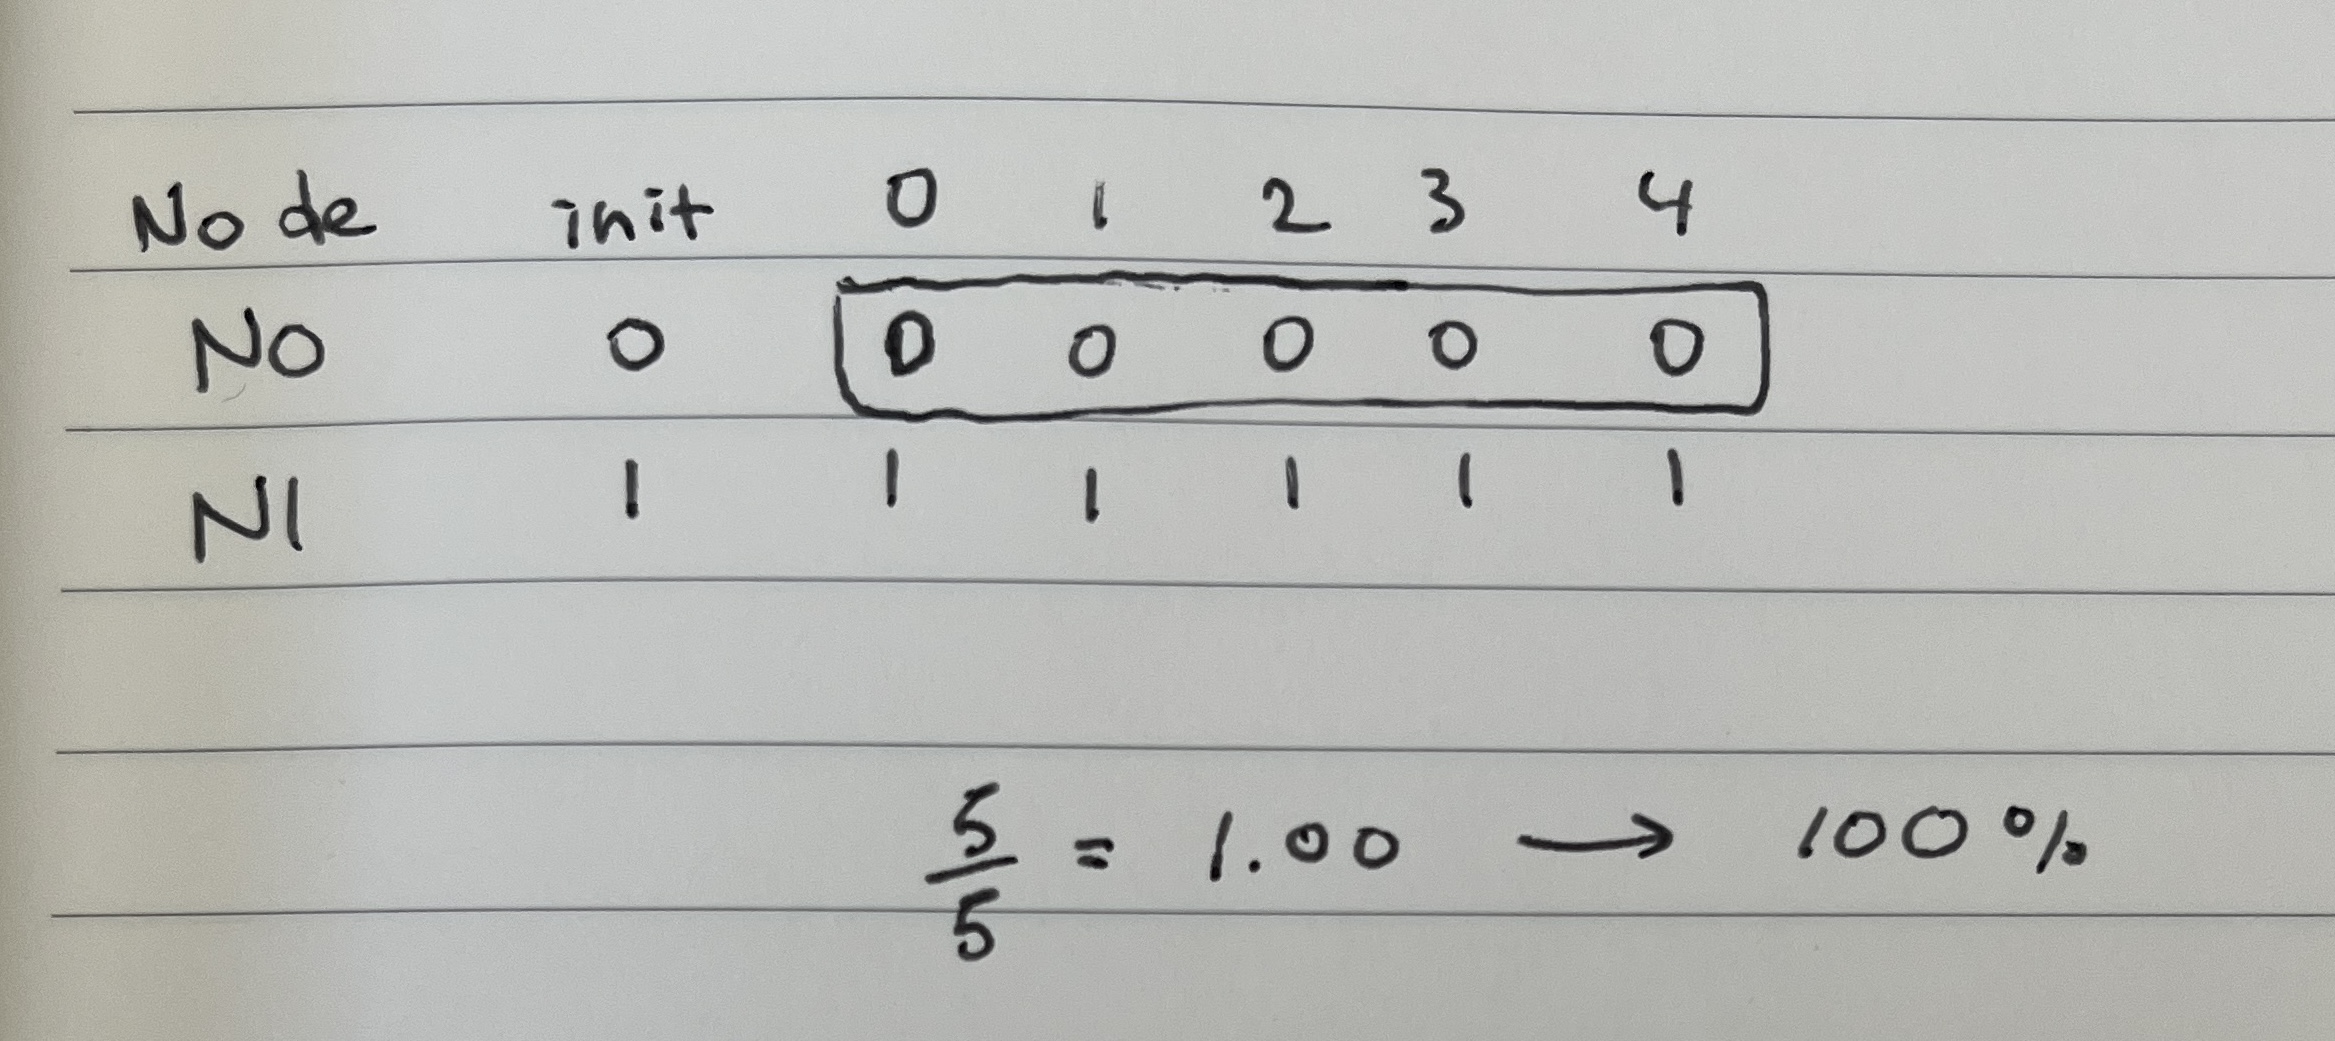 Node init 0 1 2 3 4
N0 0 0 0 0 0 0
N1 1 1 1 1 1 1
5/5 = 1.00 → 100%